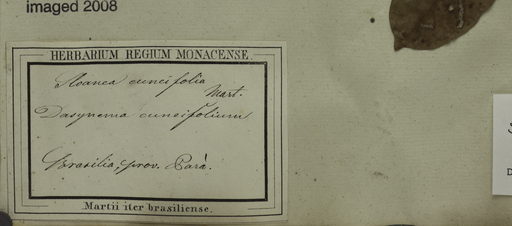 imaged 2008
HERBARIUM REGIUM MONACENSE.
Sloanea cuneifolia
Mart.
Dasynema cuneifolium
Brasilia, prov. Pará.
Martii iter brasiliense.